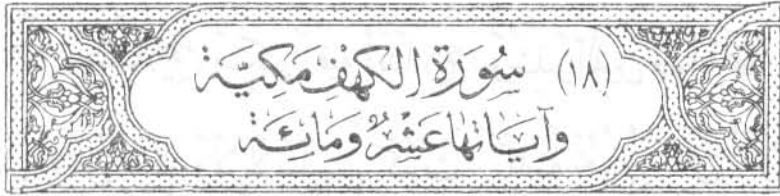 (١٨) سُورَة الكهفِ مَكيَّة
وآيَاتهَا عَشْرٌ وَمَائِة